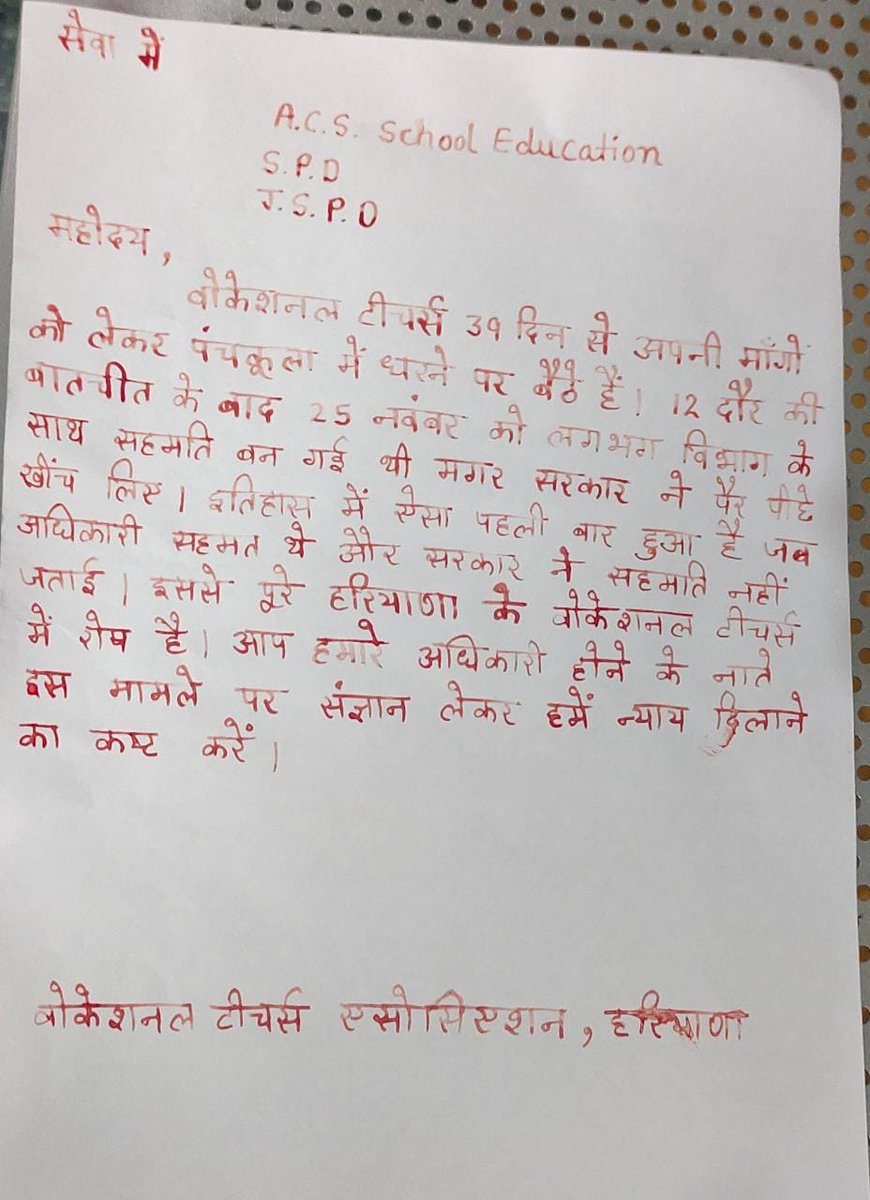 सेवा में
A.C.S. School Education
S.P.D
J.S.P.D
महोदय,
वोकेशनल टीचर्स 39 दिन से अपनी माँगों
को लेकर पंचकूला में धरने पर बैठे हैं। 12 दौर की
बातचीत के बाद 25 नवंबर को लगभग विभाग के
साथ सहमति बन गई थी मगर सरकार ने पैर पीछे
खींच लिए। इतिहास में ऐसा पहली बार हुआ है जब
अधिकारी सहमत थे और सरकार ने सहमति नहीं
जताई। इससे पूरे हरियाणा के वोकेशनल टीचर्स
में रोष है। आप हमारे अधिकारी होने के नाते
इस मामले पर संज्ञान लेकर हमें न्याय दिलाने
का कष्ट करें।
वोकेशनल टीचर्स एसोसिएशन, हरियाणा